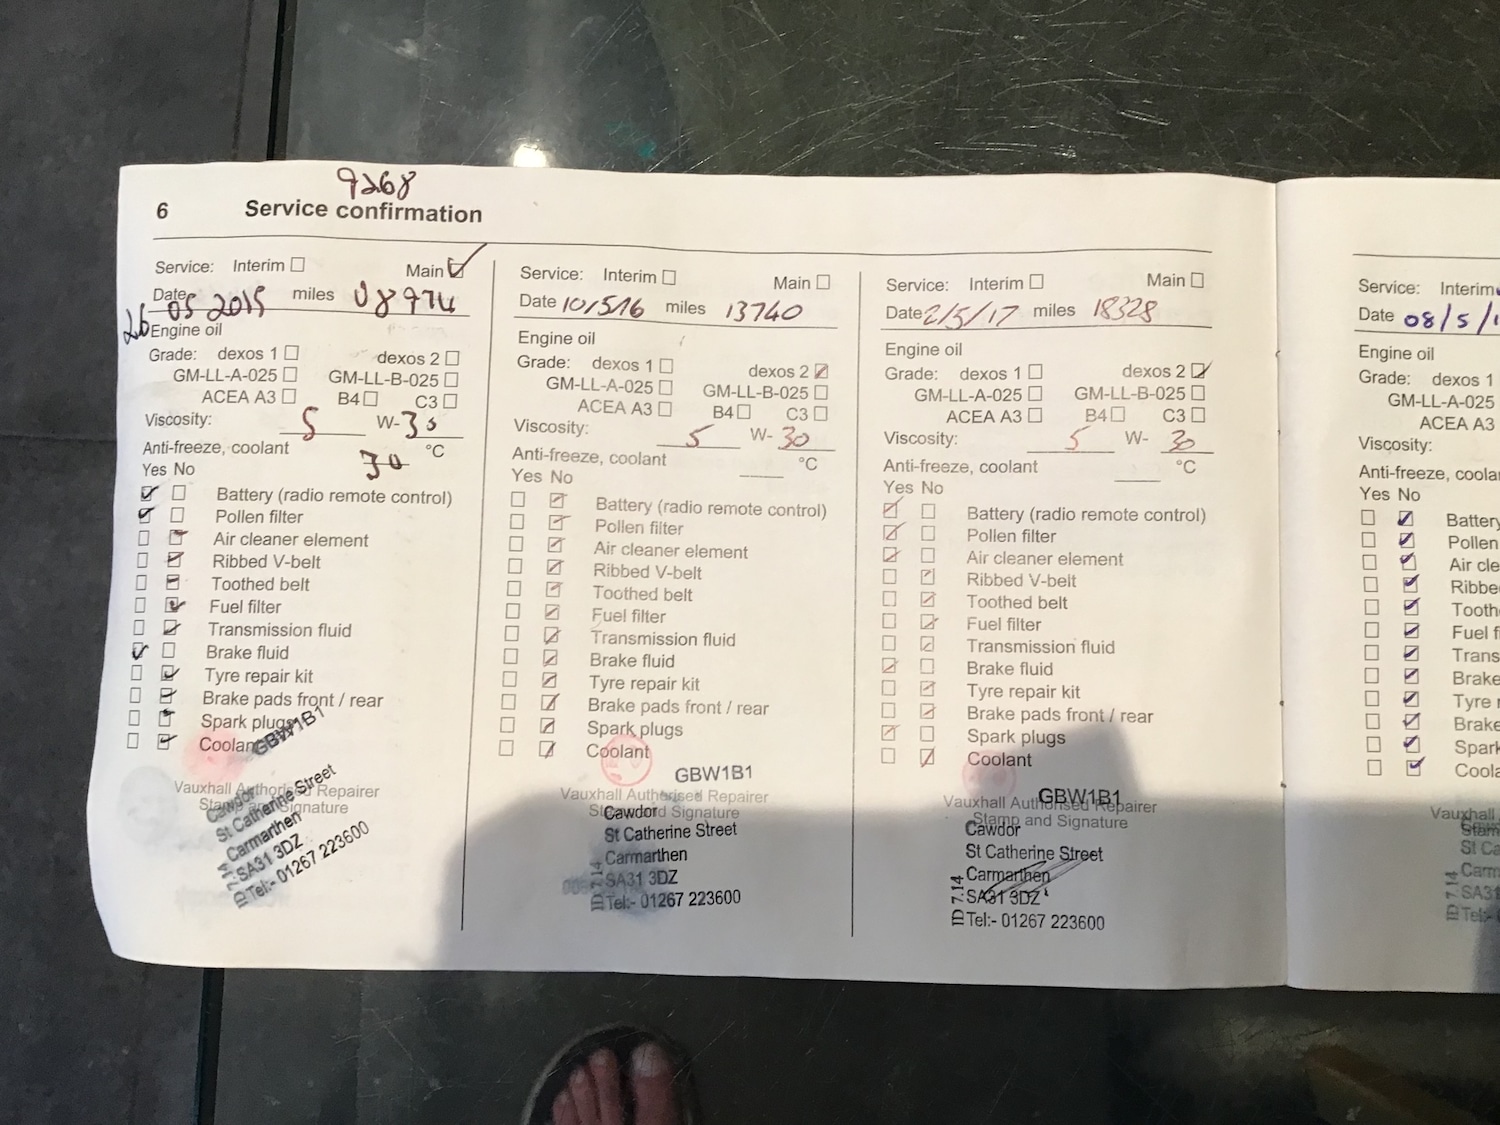 9268
6 Service confirmation
Service: Interim ☐ Main ☑
Date 26 05 2015 miles 08974
Engine oil
Grade: dexos 1 ☐ dexos 2 ☐
GM-LL-A-025 ☐ GM-LL-B-025 ☐
ACEA A3 ☐ B4 ☐ C3 ☐
Viscosity: 5 W-30
Anti-freeze, coolant 30 °C
Yes No
☑ ☐ Battery (radio remote control)
☑ ☐ Pollen filter
☐ ☑ Air cleaner element
☐ ☑ Ribbed V-belt
☐ ☑ Toothed belt
☐ ☑ Fuel filter
☐ ☑ Transmission fluid
☑ ☐ Brake fluid
☐ ☑ Tyre repair kit
☐ ☑ Brake pads front / rear
☐ ☑ Spark plugs
☐ ☑ Coolant
GBW1B1
Vauxhall Authorised Repairer
Stamp and Signature
Cawdor
St Catherine Street
Carmarthen
SA31 3DZ
Tel:- 01267 223600
ID 7.14
Service: Interim ☐ Main ☐
Date 10/5/16 miles 13740
Engine oil
Grade: dexos 1 ☐ dexos 2 ☑
GM-LL-A-025 ☐ GM-LL-B-025 ☐
ACEA A3 ☐ B4 ☐ C3 ☐
Viscosity: 5 W-30
Anti-freeze, coolant °C
Yes No
☐ ☑ Battery (radio remote control)
☐ ☑ Pollen filter
☐ ☑ Air cleaner element
☐ ☑ Ribbed V-belt
☐ ☑ Toothed belt
☐ ☑ Fuel filter
☐ ☑ Transmission fluid
☐ ☑ Brake fluid
☐ ☑ Tyre repair kit
☐ ☑ Brake pads front / rear
☐ ☑ Spark plugs
☐ ☑ Coolant
GBW1B1
Vauxhall Authorised Repairer
Stamp and Signature
Cawdor
St Catherine Street
Carmarthen
SA31 3DZ
Tel:- 01267 223600
ID 7.14
Service: Interim ☐ Main ☐
Date 2/5/17 miles 18328
Engine oil
Grade: dexos 1 ☐ dexos 2 ☑
GM-LL-A-025 ☐ GM-LL-B-025 ☐
ACEA A3 ☐ B4 ☐ C3 ☐
Viscosity: 5 W-30
Anti-freeze, coolant °C
Yes No
☑ ☐ Battery (radio remote control)
☑ ☐ Pollen filter
☑ ☐ Air cleaner element
☐ ☑ Ribbed V-belt
☐ ☑ Toothed belt
☐ ☑ Fuel filter
☐ ☑ Transmission fluid
☑ ☐ Brake fluid
☐ ☑ Tyre repair kit
☐ ☑ Brake pads front / rear
☑ ☐ Spark plugs
☐ ☑ Coolant
GBW1B1
Vauxhall Authorised Repairer
Stamp and Signature
Cawdor
St Catherine Street
Carmarthen
SA31 3DZ
Tel:- 01267 223600
ID 7.14
Service: Interim
Date 08/5/1
Engine oil
Grade: dexos 1
GM-LL-A-025
ACEA A3
Viscosity:
Anti-freeze, coola
Yes No
☐ ☑ Battery
☐ ☑ Pollen
☐ ☑ Air cle
☐ ☑ Ribbe
☐ ☑ Tooth
☐ ☑ Fuel f
☐ ☑ Trans
☐ ☑ Brake
☐ ☑ Tyre r
☐ ☑ Brake
☐ ☑ Spark
☐ ☑ Coola
Vauxhall
Stam
St Ca
Carm
SA31
Tel:-
7.14